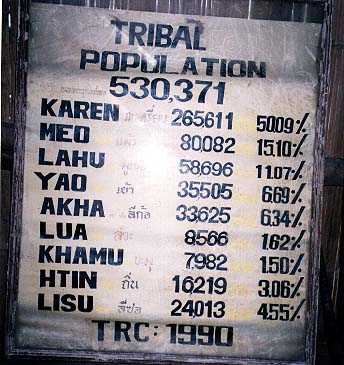 TRIBAL
POPULATION
530,371
KAREN 265611 50.09%
MEO แม้ว 80082 15.10%
LAHU 58,696 11.07%
YAO เย้า 35505 6.69%
AKHA ลีก้อ 33625 6.34%
LUA ลัวะ 8566 1.62%
KHAMU ขะมุ 7,982 1.50%
HTIN ถิ่น 16219 3.06%
LISU ลีซอ 24,013 4.55%
TRC: 1990